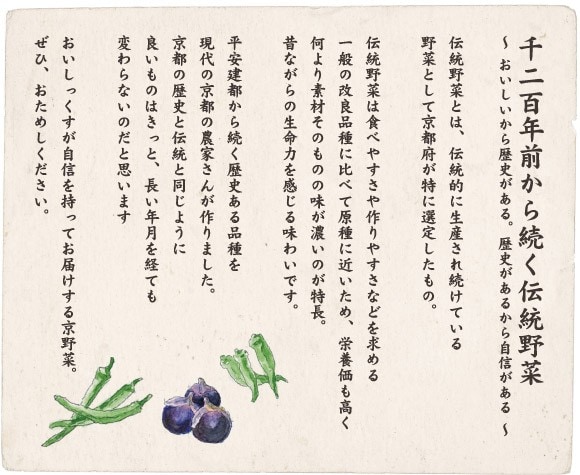 千二百年前から続く伝統野菜
～ おいしいから歴史がある。歴史があるから自信がある ～
伝統野菜とは、伝統的に生産され続けている
野菜として京都府が特に選定したもの。
伝統野菜は食べやすさや作りやすさなどを求める
一般の改良品種に比べて原種に近いため、栄養価も高く
何より素材そのものの味が濃いのが特長。
昔ながらの生命力を感じる味わいです。
平安建都から続く歴史ある品種を
現代の京都の農家さんが作りました。
京都の歴史と伝統と同じように
良いものはきっと、長い年月を経ても
変わらないのだと思います
おいしっくすが自信を持ってお届けする京野菜。
ぜひ、おためしください。